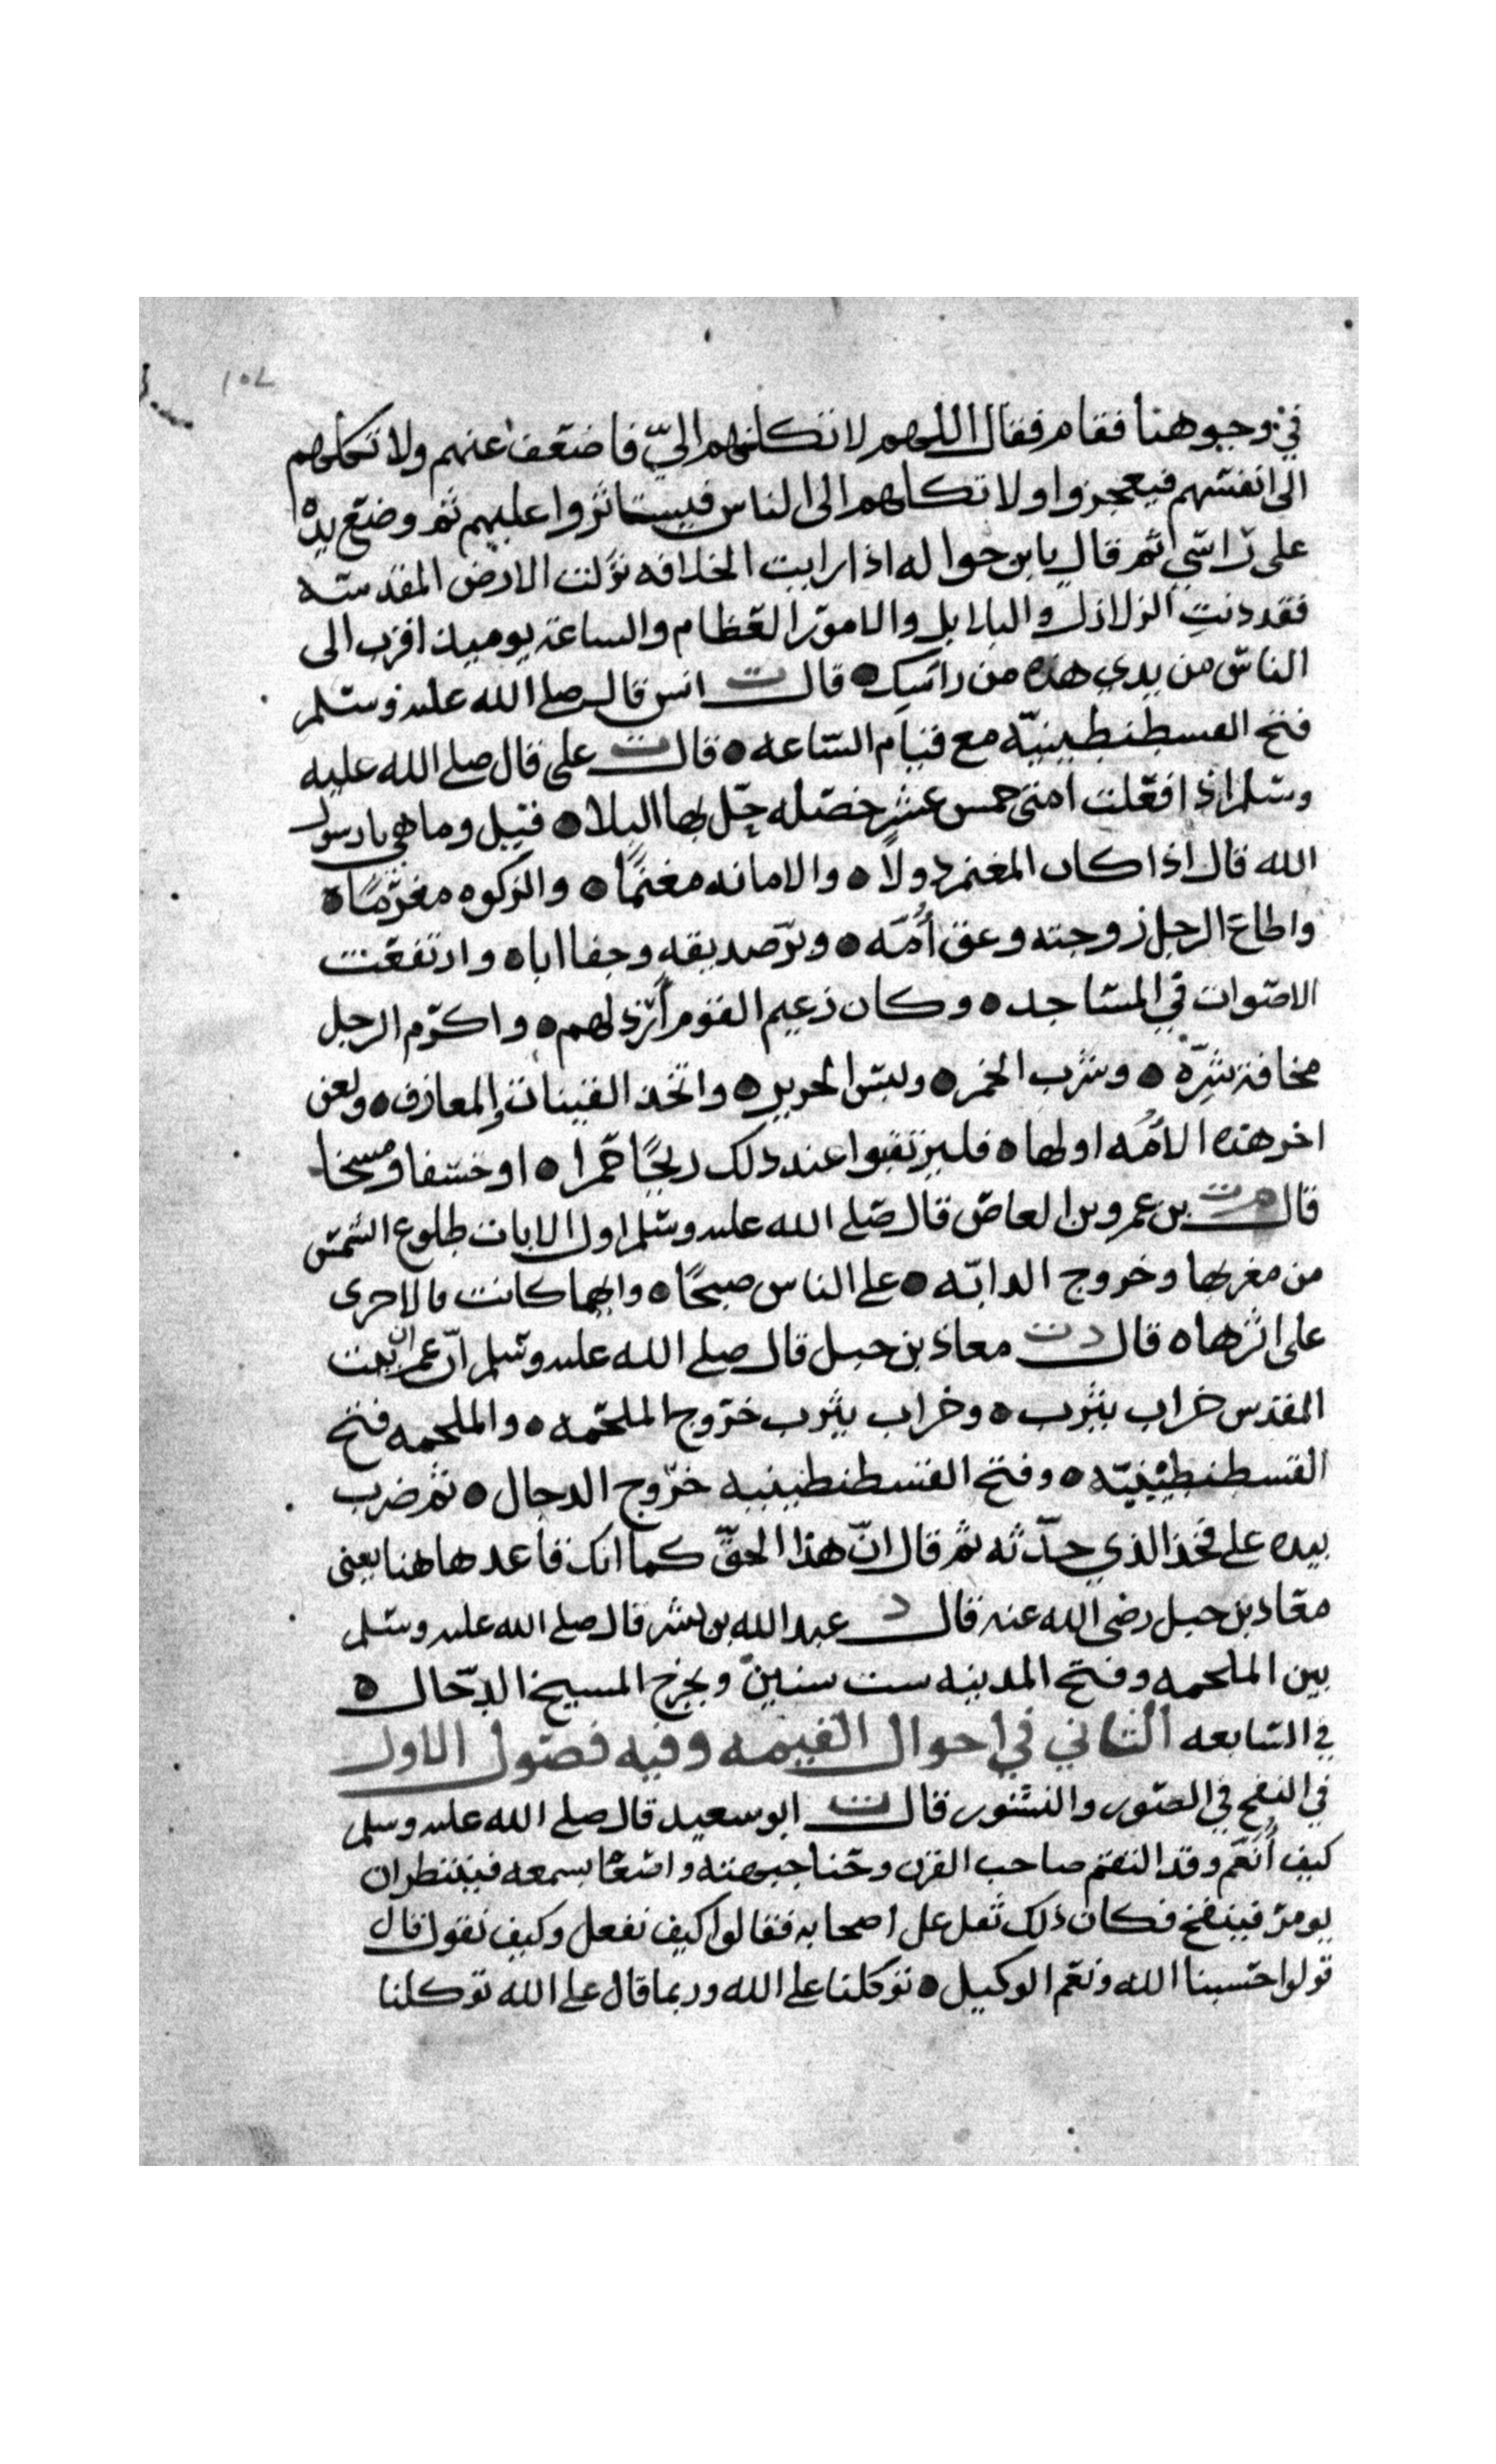 ١٥٧
في وجوهنا فقام فقال اللهم لا تكلهم الىّ فاضعف عنهم ولا تكلهم
الى انفسهم فيعجزوا ولا تكلهم الى الناس فيستاثروا عليهم ثم وضع يده
على راسي ثم قال يا بن حواله اذا رايت الخلافه نزلت الارض المقدسه
فقد دنت الزلازل والبلابل والامور العظام والساعة يوميذ اقرب الى
الناس من يدي هذه من راسك ٥ قال ت انس قال صلى الله عليه وسلم
فتح القسطنطينيّه مع قيام الساعه ٥ قال ت على قال صلى الله عليه
وسلم اذا فعلت امتى خمس عشر خصله حلّ بها البلا ٥ قيل وما هي يا رسول
الله قال اذا كان المغنم دولاً ٥ والامانه مغنمًا ٥ والزكوه مغرمًا ٥
واطاع الرجل زوجته وعق أُمّه ٥ وبرّ صديقه وجفا اباه وارتفعت
الاصوات في المساجد ٥ وكان زعيم القوم أرذلهم ٥ واكرم الرجل
مخافة شرّه ٥ وشرب الخمر ٥ ولبس الحرير ٥ واتخذ القينات والمعازف ٥ ولعن
اخر هذه الأمّه اولها ٥ فليرتقبوا عند ذلك ريحًا حمرا ٥ او خسفا ومسخا
قال م ت بن عمرو بن العاص قال صلى الله عليه وسلم اول الايات طلوع الشمس
من مغربها وخروج الدابّه ٥ على الناس صبحًا ٥ وايهما كانت فالاخرى
على اثرها ٥ قال د ت معاذ بن جبل قال صلى الله عليه وسلم انّ عمران بيت
المقدس خراب يثرب ٥ وخراب يثرب خروج الملحمه ٥ والملحمه فتح
القسطنطينيّه ٥ وفتح القسطنطينيه خروج الدجال ٥ ثم ضرب
بيده على فخذ الذي حدّثه ثم قال انّ هذا الحقّ كما انك قاعد هاهنا يعنى
معاذ بن جبل رضى الله عنه قال د عبد الله بن بسر قال صلى الله عليه وسلم
بين الملحمه وفتح المدينه ست سنين ويخرج المسيخ الدجّال ٥
في السابعه الثاني في احوال القيمه وفيه فصول الاول
في النفخ في الصور والنشور قال ت ابو سعيد قال صلى الله عليه وسلم
كيف أنعم وقد التقم صاحب القرن وحنا جبهته واصغا بسمعه فينتظر ان
يومر فينفخ فكان ذلك ثقل على اصحابه فقالوا كيف نفعل وكيف نقول قال
قولوا حسبنا الله ونعم الوكيل ٥ توكلنا على الله وربما قال على الله توكلنا